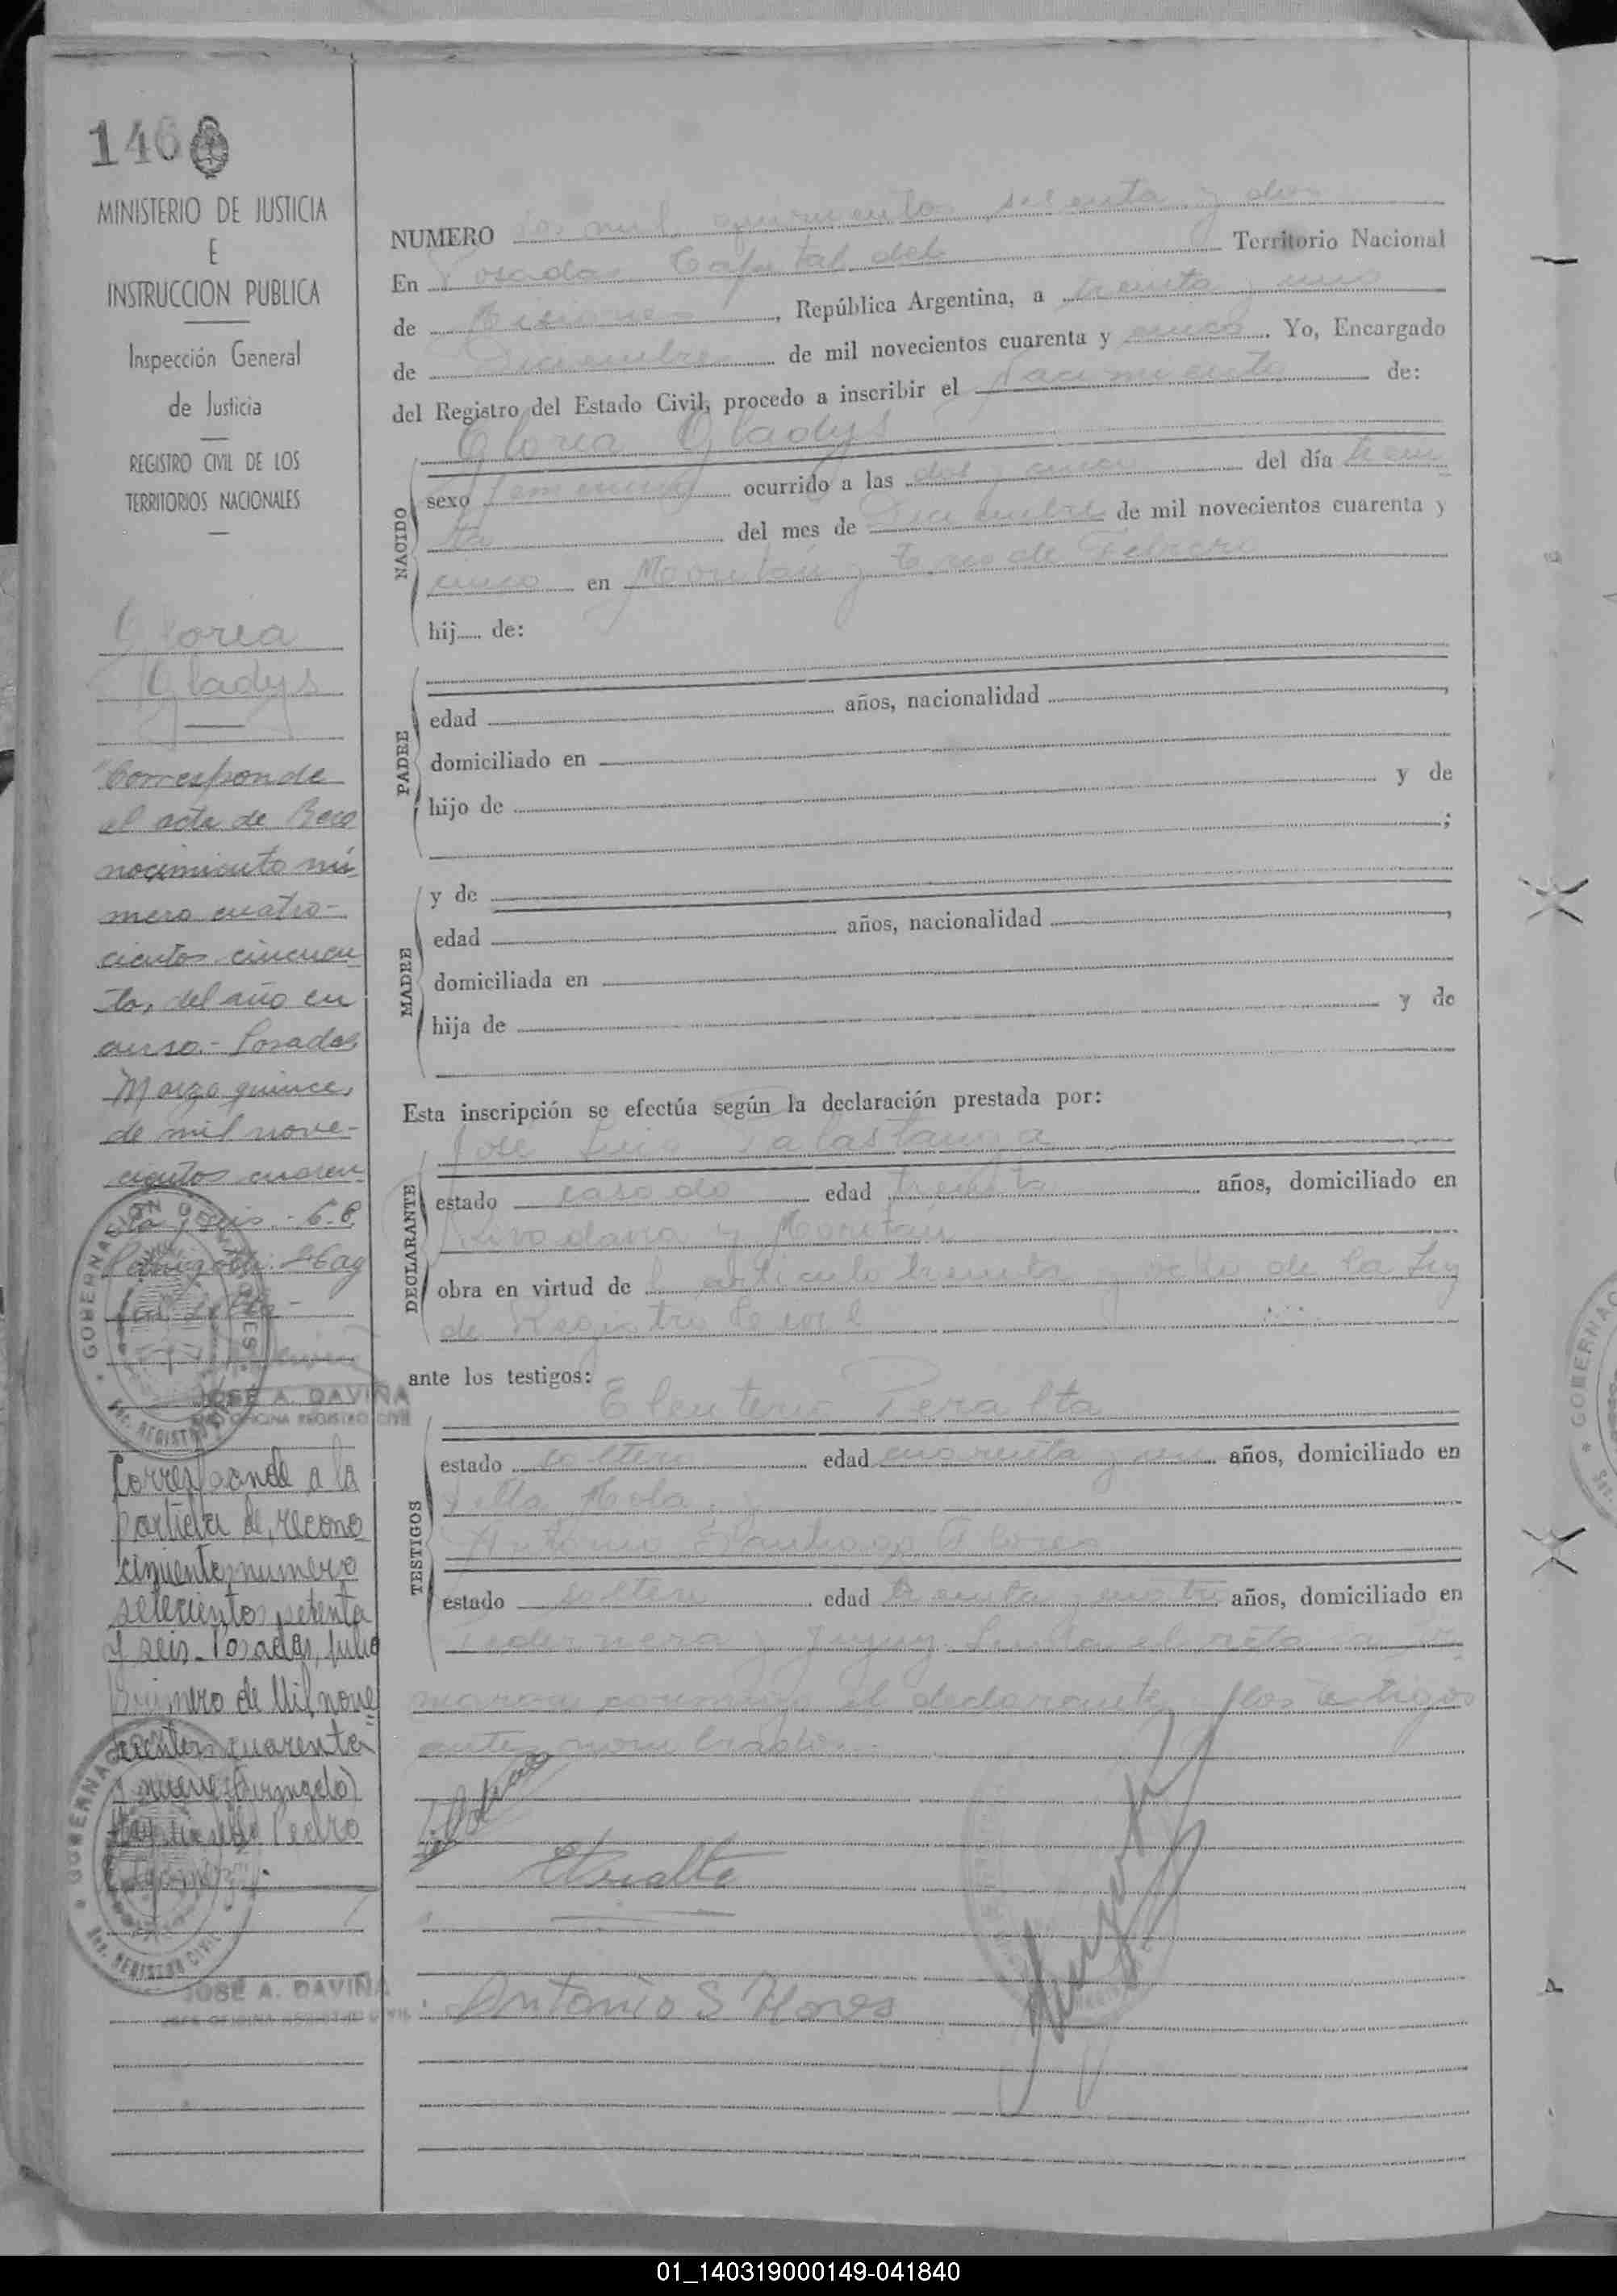 146
MINISTERIO DE JUSTICIA
E
INSTRUCCION PUBLICA
Inspección General
de Justicia
REGISTRO CIVIL DE LOS
TERRITORIOS NACIONALES
Gloria
Gladys
Corresponde
el acta de Reco
nocimiento nú
mero cuatro-
cientos cincuen
ta, del año en
curso.- Posadas
Marzo quince,
de mil nove-
cientos cuaren
ta y seis.-
JOSÉ A. DAVIÑA
JEFE OFICINA REGISTRO CIVIL
Corresponde a la
partida de recono
cimiento numero
setecientos setenta
y seis. Posadas, julio
primero de Mil nove
cientos cuarenta
y nueve (firmado)
Pedro
JOSÉ A. DAVIÑA
JEFE OFICINA REGISTRO CIVIL
NUMERO dos mil quinientos setenta y dos
En Posadas Capital del Territorio Nacional
de Misiones, República Argentina, a treinta y uno
de Diciembre de mil novecientos cuarenta y cinco. Yo, Encargado
del Registro del Estado Civil, procedo a inscribir el Nacimiento de:
Gloria Gladys
NACIDO
sexo femenino ocurrido a las dos y cinco del día trein
ta del mes de Diciembre de mil novecientos cuarenta y
cinco en Moritán y tres de Febrero
hij de:
PADRE
edad años, nacionalidad
domiciliado en
hijo de y de
;
MADRE
y de
edad años, nacionalidad
domiciliada en
hija de y de
Esta inscripción se efectúa según la declaración prestada por:
DECLARANTE
José Luis
estado casado edad treinta años, domiciliado en
Rivadavia y Moritán
obra en virtud de l artículo treinta y ocho de la Ley
de Registro Civil
ante los testigos:
TESTIGOS
Eleuterio Peralta
estado soltero edad cuarenta y un años, domiciliado en
Villa Mola.
Antonio Santiago Flores
estado soltero edad treinta y cuatro años, domiciliado en
y Jujuy. Leída el acta la fir
maron conmigo el declarante y los testigos
antes nombrados.
EPeralta
Antonio S Flores
01_140319000149-041840